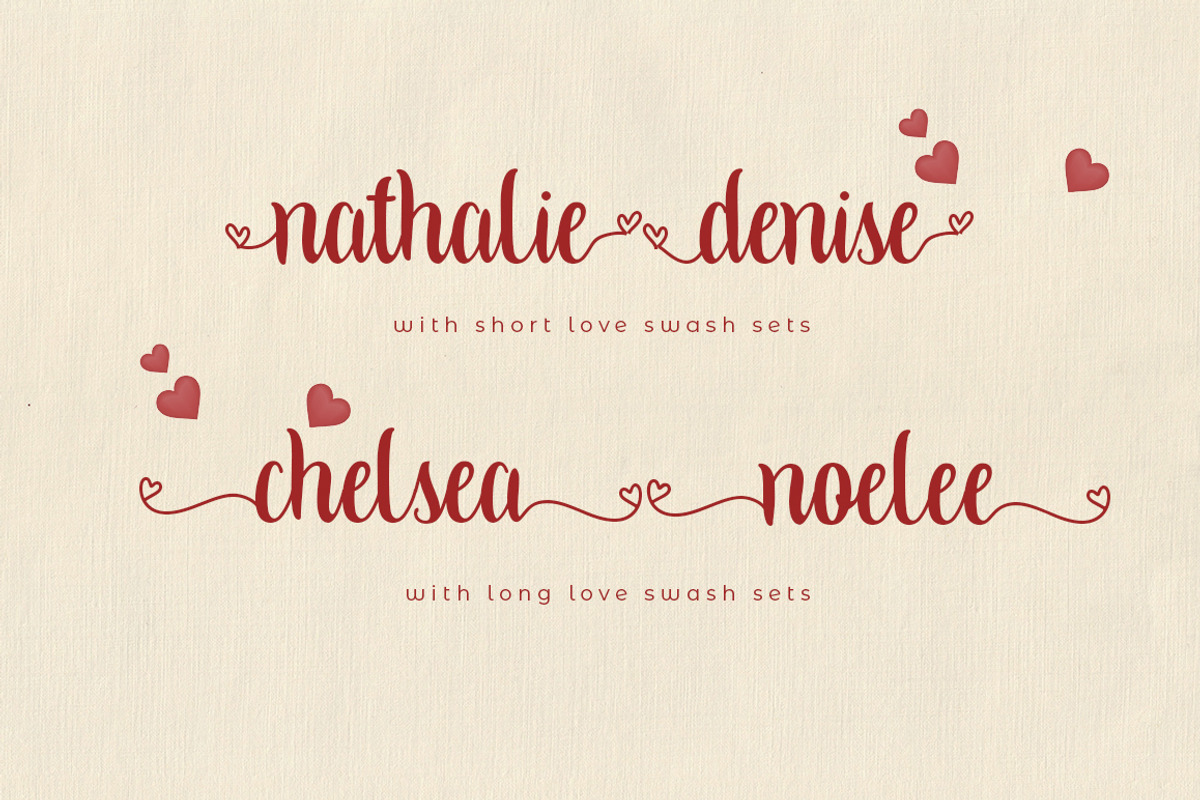 nathalie denise
with short love swash sets
chelsea noelee
with long love swash sets